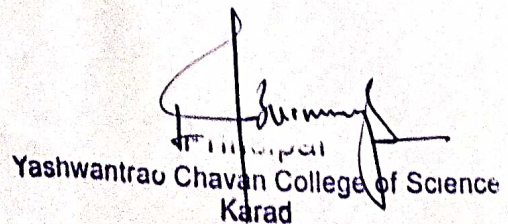 Principal
Yashwantrao Chavan College of Science
Karad